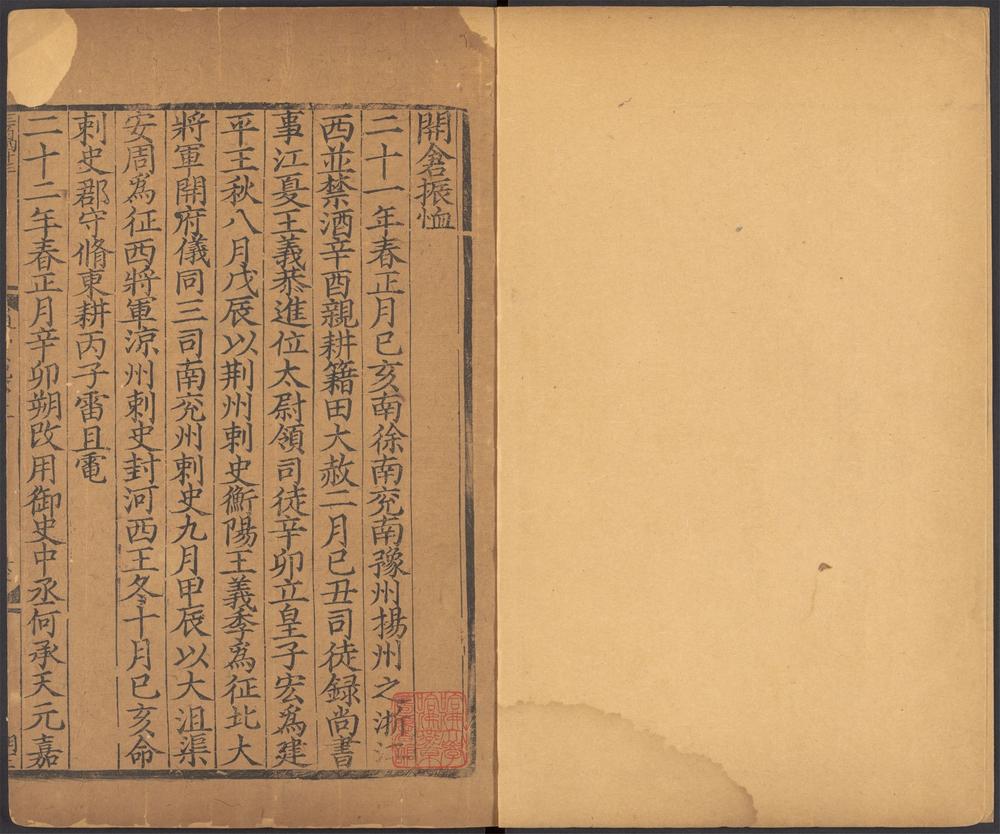 開倉振恤
二十一年春正月己亥南徐南兖南豫州揚州之浙江
西並禁酒辛酉親耕籍田大赦二月已丑司徒録尚書
事江夏王義恭進位太尉領司徒辛卯立皇子宏爲建
平王秋八月戊辰以荆州刺史衡陽王義季爲征北大
將軍開府儀同三司南兖州刺史九月甲辰以大沮渠
安周爲征西將軍涼州刺史封河西王冬十月已亥命
刺史郡守脩東耕丙子雷且電
二十二年春正月辛卯朔改用御史中丞何承天元嘉